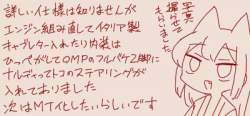 詳しい仕様は知りませんが
エンジン組み直してイタリア製
キャブレター入れたり内装は
ひっぺがしてOMPのフルバケ2脚に
ナルディってトコのステアリングが
入れてありました
次はMT化としたいらしいです
写真
撮らせて
もらいました